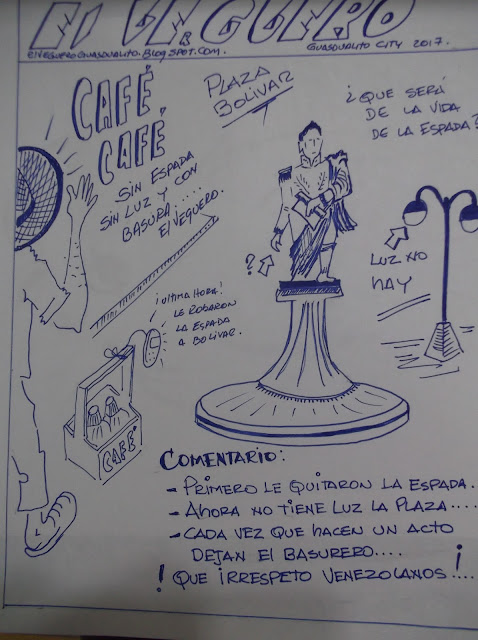 El VEGUERO
ElVEGUEROGUASDUALITO.BlOGSPOT.COM.
GUASDUALITO CITY 2017.
CAFÉ,
CAFÉ
SIN ESPADA
SIN LUZ Y CON
BASURA.....
El VEGUERO.
PLAZA
BOLIVAR
¿QUE SERÁ
DE LA VIDA
DE LA ESPADA?
?
LUZ NO
HAY
¡ULTIMA HORA!
LE ROBARON
LA ESPADA
A BOLIVAR.
CAFÉ
COMENTARIO:
- PRIMERO LE QUITARON LA ESPADA.
- AHORA NO TIENE LUZ LA PLAZA....
- CADA VEZ QUE HACEN UN ACTO
DEJAN El BASURERO....
! QUE IRRESPETO VENEZOLANOS ¡....